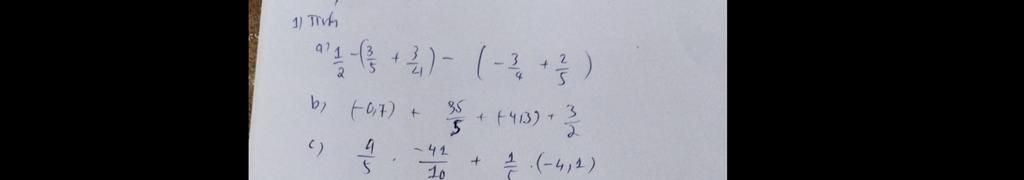 1) Tính
a) 1/2 - (3/5 + 3/4) - (-3/4 + 2/5)
b) (-0,7) + 35/5 + (-4,3) + 3/2
c) 4/5 . -41/10 + 1/5 . (-4,1)